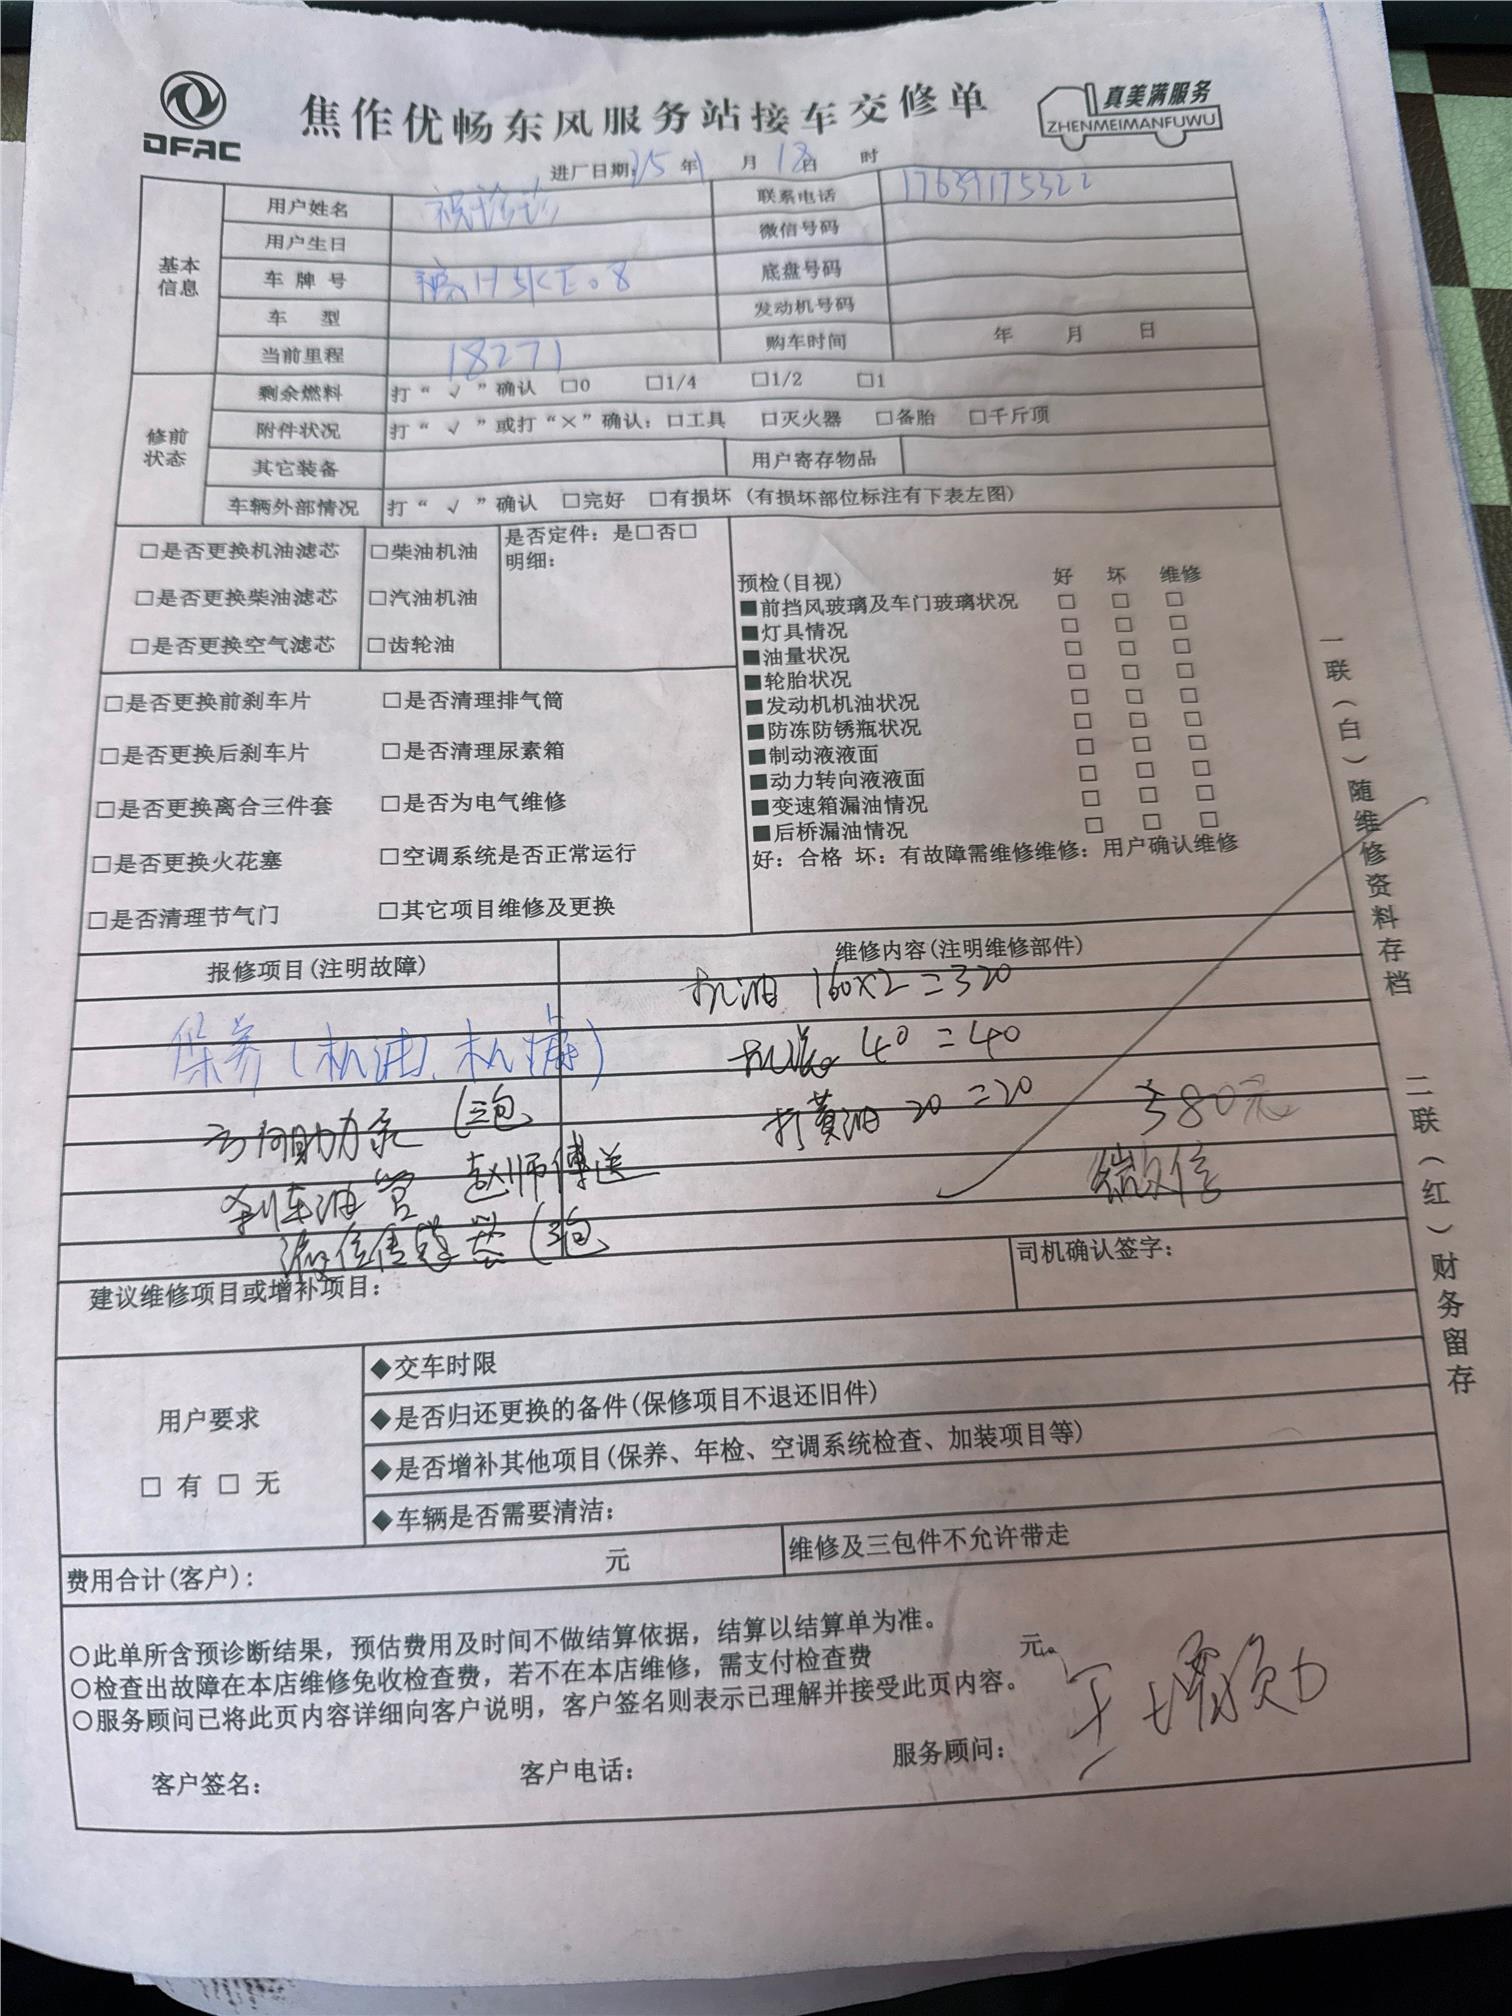 DFAC
焦作优畅东风服务站接车交修单
真美满服务
ZHENMEIMANFUWU
进厂日期: 25 年 1 月 18 日 时
基本信息
用户姓名 祝 联系电话 17639175322
用户生日 微信号码
车牌号 豫H5KE08 底盘号码
车型 发动机号码
当前里程 18271 购车时间 年 月 日
修前状态
剩余燃料 打“√”确认 □0 □1/4 □1/2 □1
附件状况 打“√”或打“×”确认: □工具 □灭火器 □备胎 □千斤顶
其它装备 用户寄存物品
车辆外部情况 打“√”确认 □完好 □有损坏 (有损坏部位标注有下表左图)
□是否更换机油滤芯 □柴油机油
□是否更换柴油滤芯 □汽油机油
□是否更换空气滤芯 □齿轮油
是否定件: 是□否□
明细:
□是否更换前刹车片 □是否清理排气筒
□是否更换后刹车片 □是否清理尿素箱
□是否更换离合三件套 □是否为电气维修
□是否更换火花塞 □空调系统是否正常运行
□是否清理节气门 □其它项目维修及更换
预检(目视) 好 坏 维修
■前挡风玻璃及车门玻璃状况 □ □ □
■灯具情况 □ □ □
■油量状况 □ □ □
■轮胎状况 □ □ □
■发动机机油状况 □ □ □
■防冻防锈瓶状况 □ □ □
■制动液液面 □ □ □
■动力转向液液面 □ □ □
■变速箱漏油情况 □ □ □
■后桥漏油情况 □ □ □
好: 合格 坏: 有故障需维修维修: 用户确认维修
报修项目(注明故障) 维修内容(注明维修部件)
机油 160×2=320
保养(机油、机滤) 机滤 40=40
方向助力泵 (三包 打黄油 20=20 380元
刹车油管 赵师傅送 微信
液位传感器 (三包
建议维修项目或增补项目: 司机确认签字:
用户要求
□ 有 □ 无
◆交车时限
◆是否归还更换的备件(保修项目不退还旧件)
◆是否增补其他项目(保养、年检、空调系统检查、加装项目等)
◆车辆是否需要清洁:
费用合计(客户): 元 维修及三包件不允许带走
○此单所含预诊断结果, 预估费用及时间不做结算依据, 结算以结算单为准。
○检查出故障在本店维修免收检查费, 若不在本店维修, 需支付检查费 元。
○服务顾问已将此页内容详细向客户说明, 客户签名则表示已理解并接受此页内容。
客户签名: 客户电话: 服务顾问:
一联(白)随维修资料存档
二联(红)财务留存